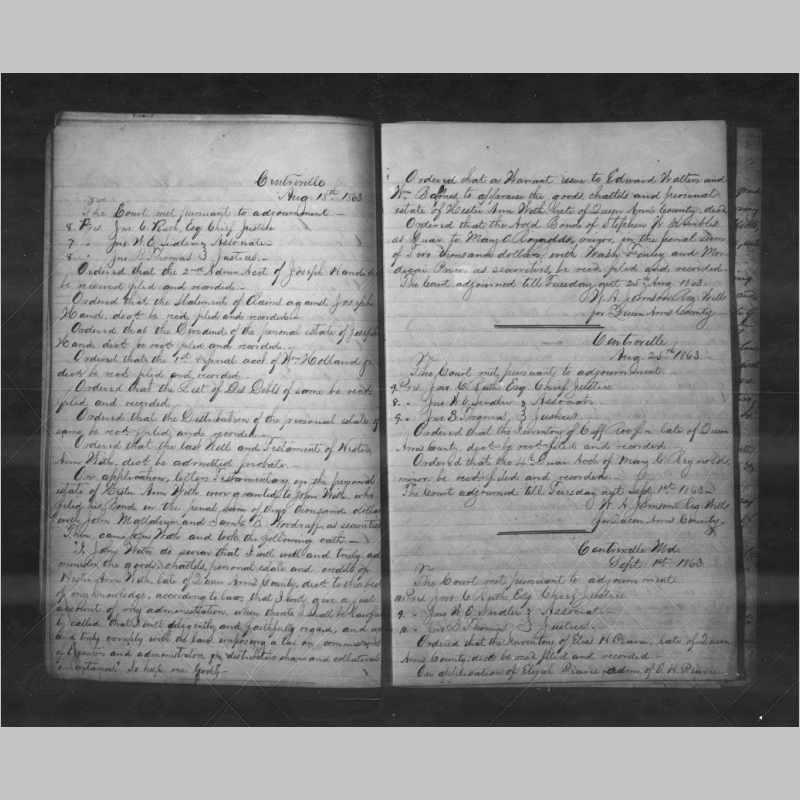 Centreville
Aug 18th 1863
The Court met pursuant to adjournment
8. Pres Jno C Ruth Esq Chief Justice
7. " Jno W E Sudler } Associate
8. " Jno S. Thomas } Justices.
Ordered that the 2nd Admn Acct of Joseph Hand
be received filed and recorded.
Ordered that the Statement of Claims against Joseph
Hand, decd be recd filed and recorded.
Ordered that the Dividend of the personal estate of Joseph
Hand decd be recd filed and recorded.
Ordered that the 1st & final acct of Wm Holland
decd be recd filed and recorded.
Ordered that the List of Des Debts of same be recd
filed and recorded.
Ordered that the Distribution of the personal estate of
same be recd filed and recorded.
Ordered that the last Will and Testament of Hester
Ann Wroth, decd be admitted probate.
On application, letters Testamentary on the personal
estate of Hester Ann Wroth were granted to John Wroth, who
filed his bond in the penal sum of thousand dollars
with John and B. as securities
Then came Jno Wroth and took the following oath.
"I John Wroth do swear that I will well and truly ad
minister the goods, chattels, personal estate and credits of
Hester Ann Wroth, late of Queen Anns County, decd. to the best
of my knowledge, according to law, that I will give a just
account of my administration, when thereto I shall be lawful
ly called that I will diligently and faithfully regard, and well
and truly comply with the laws imposing a tax on commissions
of Executors and administrators, on distributive shares and collateral
inheritances" So help me God.
Ordered that a Warrant issue to Edward Walters and
Wm to appraise the goods, chattels and personal
estate of Hester Ann Wroth late of Queen Anns County, decd
Ordered that the Addl Bond of Stephen
as Guar to Mary C Reynolds, minor, in the penal sum
of Two thousand dollars, with and
as securities be recd filed and recorded.
The Court adjourned till Tuesday next 25th Aug 1863.
W. A. Johnson Reg. Wills
for Queen Anns County
Centreville
Aug. 25th 1863.
The Court met pursuant to adjournment.
9. Pres Jno. C. Ruth Esq. Chief Justice
8. " Jno W E Sudler } Associate
9. " Jno. S. Thomas } Justices
Ordered that the Inventory of late of Queen
Anns County, decd be recd filed and recorded.
Ordered that the 4th Guar Acct of Mary C Reynolds,
minor be recd filed and recorded.
The Court adjourned till Tuesday next Sept 1st 1863.
W. A. Johnson Reg. Wills
for Queen Anns County
Centreville Md.
Sept. 1st 1863.
The Court met pursuant to adjournment
Pres Jno. C. Ruth Esq Chief Justice
9. " Jno W. E. Sudler } Associate
" Jno S Thomas } Justices.
Ordered that the Inventory of H Pearce, late of Queen
Anns County, decd be recd filed and recorded.
On application of Elijah Pearce admn. of H. Pearce